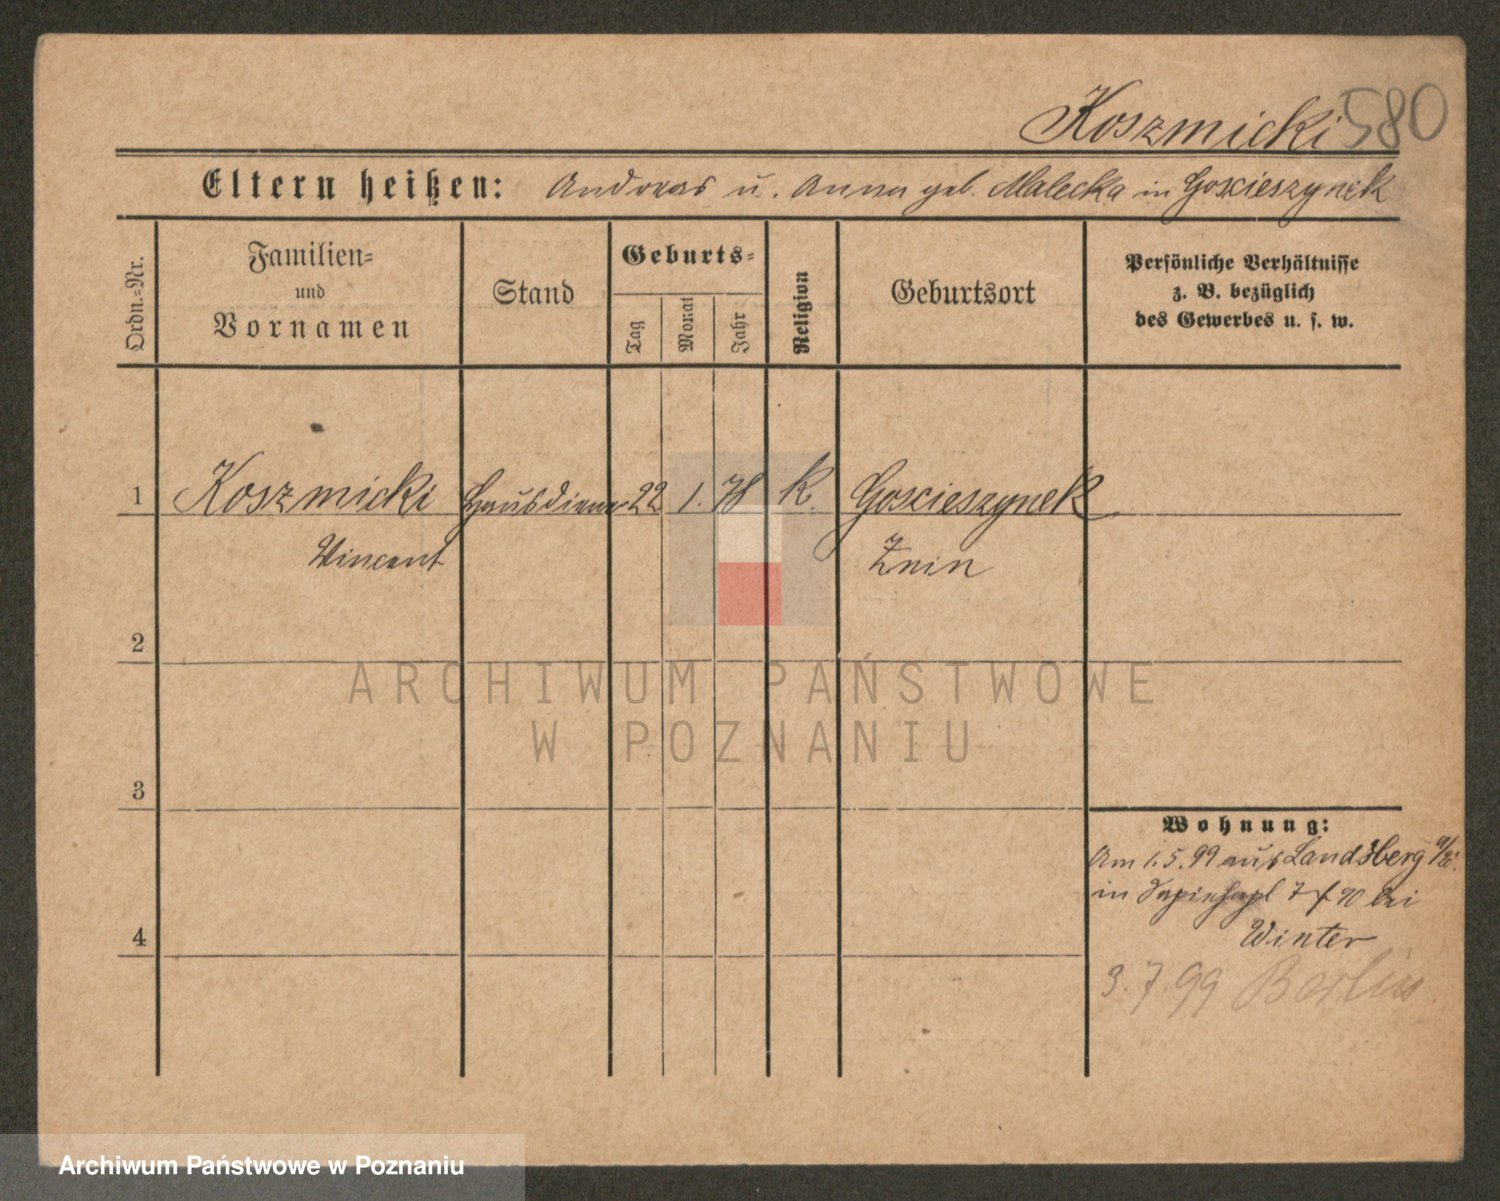 Koszmicki 580
Eltern heißen: Andreas u. Anna geb. Malecka in Goscieszynek
Ordn.-Nr.
Familien-
und
Vornamen
Stand
Geburts-
Tag
Monat
Jahr
Religion
Geburtsort
Persönliche Verhältnisse
z. B. bezüglich
des Gewerbes u. s. w.
1 Koszmicki Hausdiener 22 1. 78 k. Goscieszynek
Vincent Znin
2
ARCHIWUM PAŃSTWOWE
W POZNANIU
3
Wohnung:
Am 1.5.99 aus Landsberg a/W.
in Sapiehapl 7 f 90 bei
4
Winter
3.7.99 Berlin
Archiwum Państwowe w Poznaniu